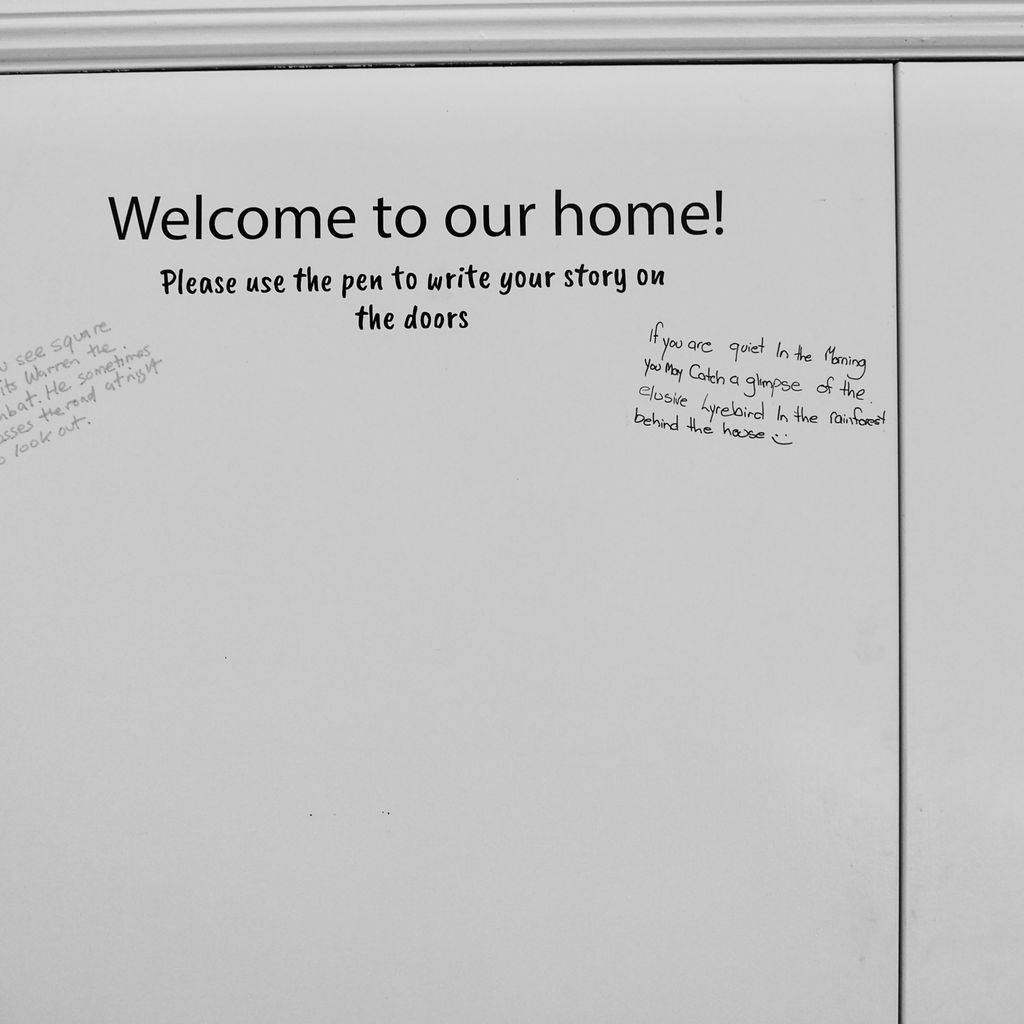 Welcome to our home!
Please use the pen to write your story on
the doors
see square
its Warren the.
He sometimes
the road at night
look out.
If you are quiet In the Morning
you May Catch a glimpse of the.
elusive Lyrebird In the rainforest
behind the house